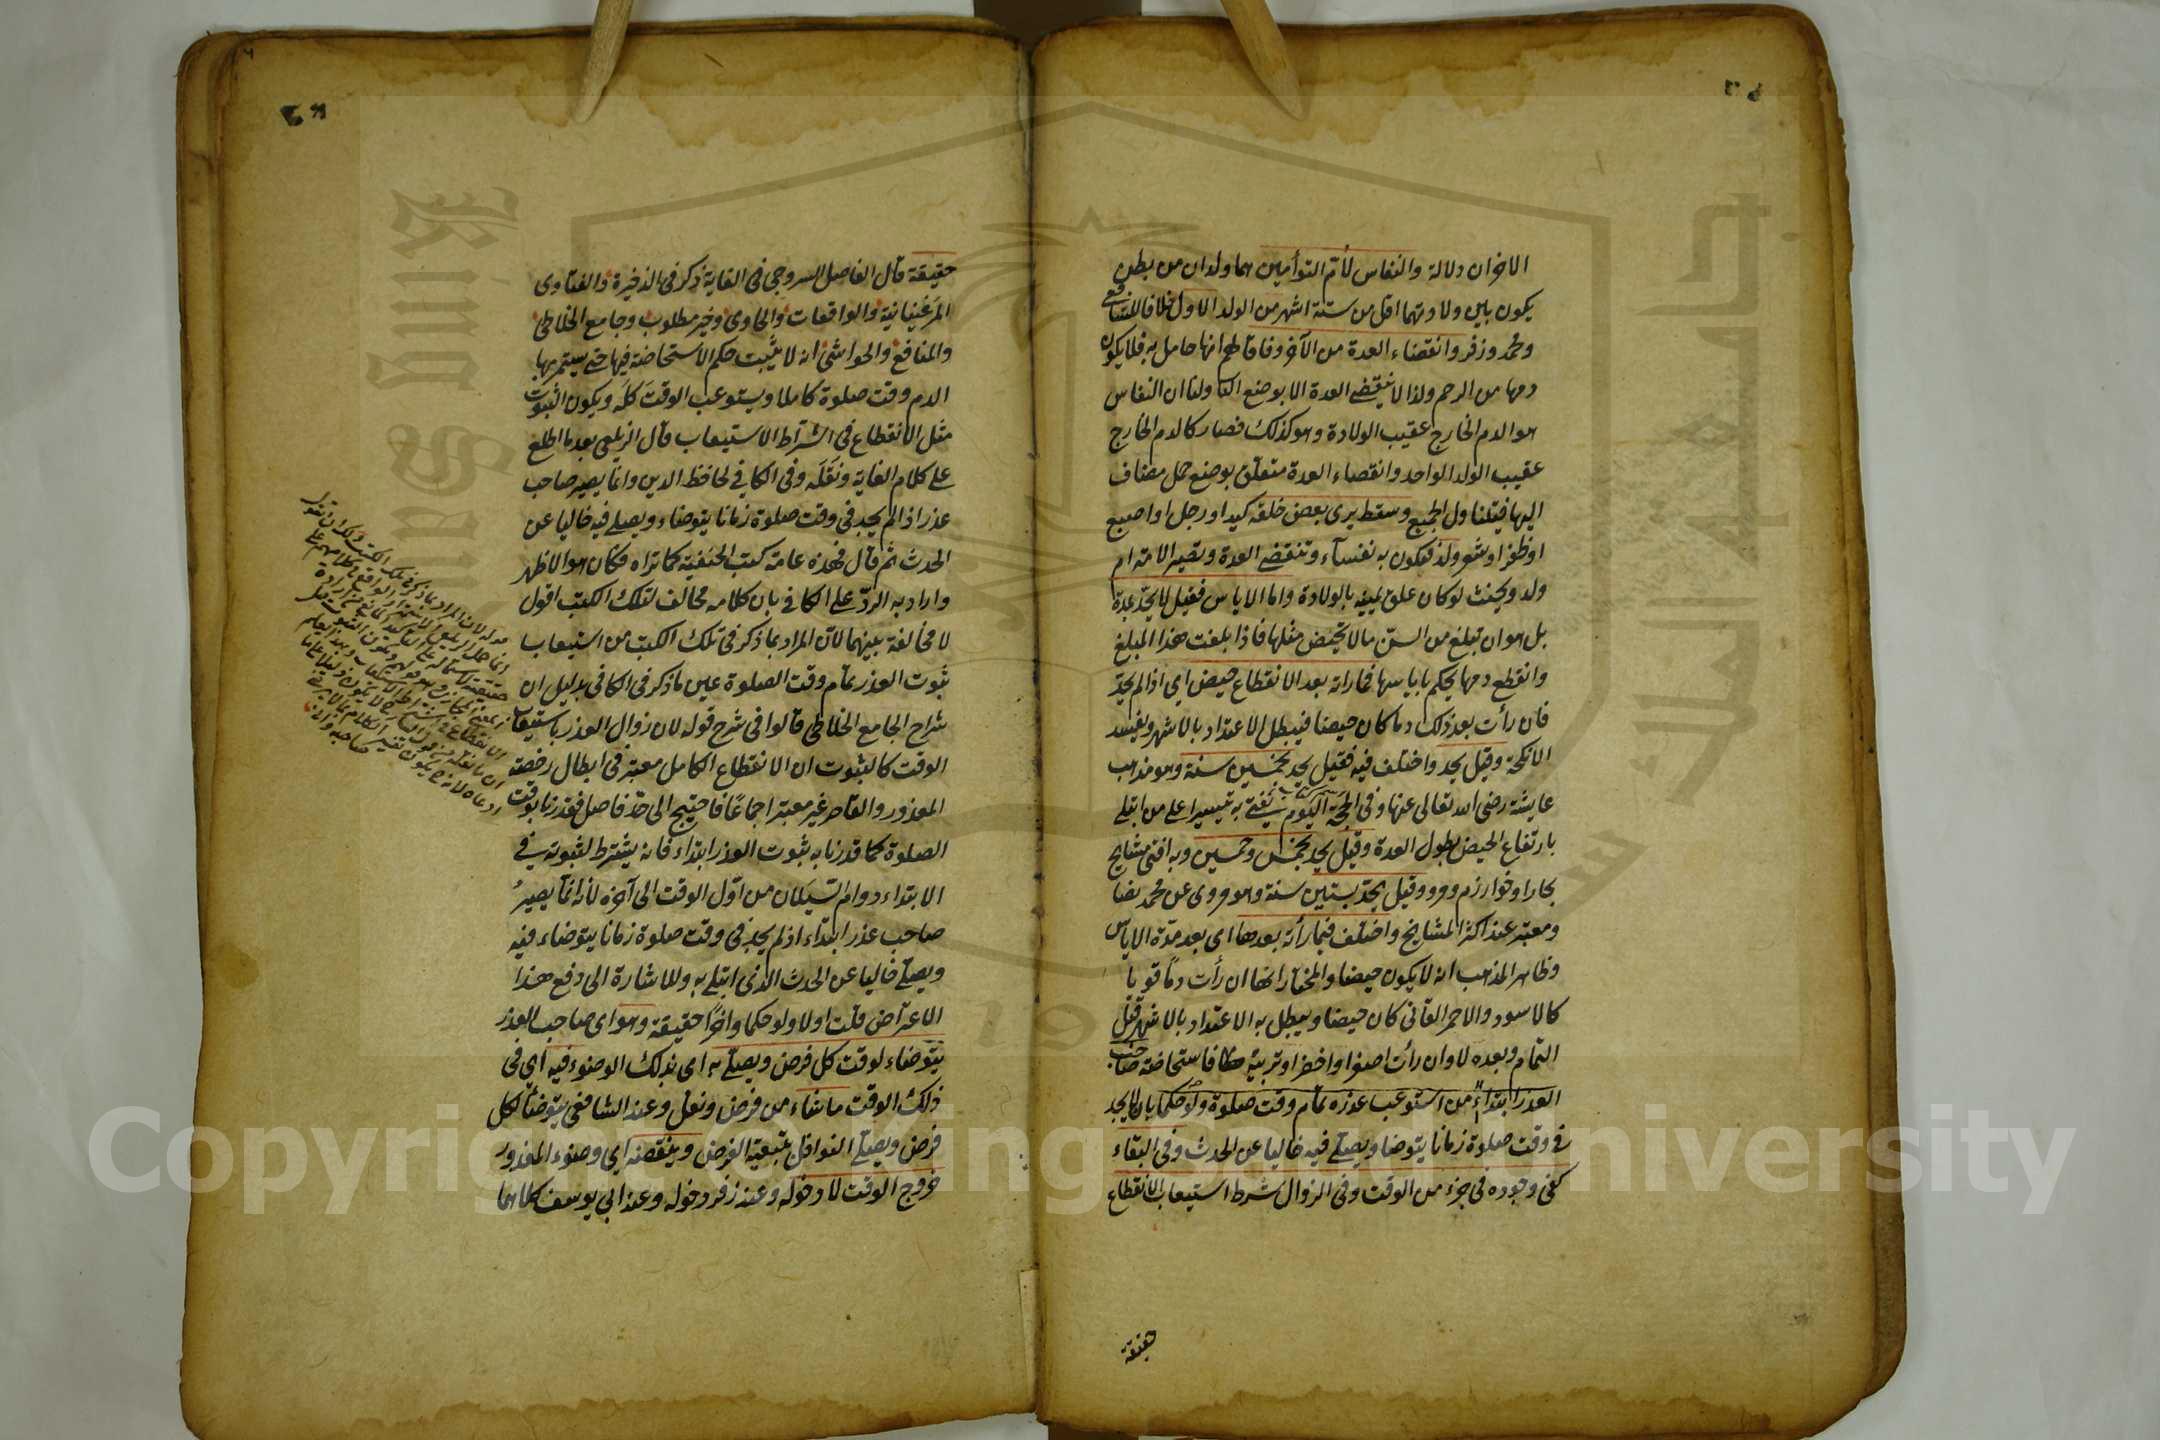 الاخران دلالة والنفاس لأم التوأمين هما ولدان من بطن
يكون بين ولادتهما اقل من ستة اشهر من الولد الاول خلافا للشافعي
ومحمد وزفر وانقضاء العدة من الآخر وفاقا لهم انها حامل به فلا يكون
دمها من الرحم ولذا لا ينقضي العدة الا بوضع الثا ولنا ان النفاس
هو الدم الخارج عقيب الولادة وهو كذلك فصار كالدم الخارج
عقيب الولد الواحد وانقضاء العدة متعلق بوضع حمل مضاف
اليها فيتناول الجميع وسقط يرى بعض خلقه كيد او رجل او اصبع
او ظفر او شعر ولد فتكون به نفسآء وتنقضي العدة وتصير الامة ام
ولد ويحنث لو كان علق يمينه بالولادة واما الاياس فقيل لا يحد بمدة
بل هو ان تبلغ من السن ما لا تحيض مثلها فاذا بلغت هذا المبلغ
وانقطع دمها يحكم باياسها فما رأته بعد الانقطاع حيض اي اذا لم يحد
فان رأت بعد ذلك دما كان حيضا فيبطل الاعتداد بالاشهر ويفسد
الانكحة وقيل يحد واختلف فيه فقيل يحد بخمسين سنة وهو مذهب
عايشة رضي الله تعالى عنها وفي الحجة اليوم يفتى به تيسيرا على من ابتلي
بارتفاع الحيض بطول العدة وقيل يحد بخمس وخمسين وبه افتى مشايخ
بخارا وخوارزم ومرو وقيل يحد بستين سنة وهو مروى عن محمد نصا
ومعتبر عند اكثر المشايخ واختلف فيما رأته بعدها اى بعد مدة الاياس
وظاهر المذهب انه لا يكون حيضا والمختار انها ان رأت دما قويا
كالاسود والاحمر القانى كان حيضا ويبطل به الاعتداد بالاشهر قبل
التمام وبعده لا وان رأت اصفر او اخضر او تربية فاستحاضة صاحب
العذر ابتداء من استوعب عذره تمام وقت صلوة ولو حكما بان لا يجد
فى وقت صلوة زمانا يتوضا ويصلى فيه خاليا عن الحدث وفى البقاء
كفى وجوده فى جزء من الوقت وفى الزوال شرط استيعاب الانقطاع
حقيقة
حقيقة قال الفاضل السروجى فى الغاية ذكر فى الذخيرة والفتاوى
المرغينانية والواقعات والحاوى وخير مطلوب وجامع الخلاطى
والمنافع والحواشى انه لا يثبت حكم الاستحاضة فيها حتى يستمر بها
الدم وقت صلوة كاملا ويستوعب الوقت كله ويكون الثبوت
مثل الانقطاع فى اشتراط الاستيعاب قال الزيلعى بعد ما اطلع
على كلام الغاية ونقله وفى الكافى لحافظ الدين وانما يصير صاحب
عذر اذا لم يجد فى وقت صلوة زمانا يتوضاء ويصلى فيه خاليا عن
الحدث ثم قال فهذه عامة كتب الحنفية كما تراه فكان هو الاظهر
واراد به الرد على الكافى بان كلامه مخالف لتلك الكتب اقول
لا مخالفة بينهما لان المراد بما ذكر فى تلك الكتب من استيعاب
ثبوت العذر تمام وقت الصلوة عين ما ذكر فى الكافى بدليل ان
شراح الجامع الخلاطى قالوا فى شرح قوله لان زوال العذر باستيعاب
الوقت كالثبوت ان الانقطاع الكامل معتبر فى ابطال رخصة
المعذور والقاصر غير معتبر اجماعا فاحتيج الى حد فاصل فقدرنا بوقت
الصلوة كما قدرنا به ثبوت العذر ابتداء فانه يشترط لثبوته فى
الابتداء دوام السيلان من اول الوقت الى آخره لانه انما يصير
صاحب عذر ابتداء اذ لم يجد فى وقت صلوة زمانا يتوضاء فيه
ويصلى خاليا عن الحدث الذى ابتلى به وللاشارة الى دفع هذا
الاعتراض قلت اولا ولو حكما وآخرا حقيقة وهو اى صاحب العذر
يتوضاء لوقت كل فرض ويصلى به اى بذلك الوضوء فيه اى فى
ذلك الوقت ما شاء من فرض ونفل وعند الشافعى يتوضأ لكل
فرض ويصلى النوافل بتبعية الفرض وينقضه اى وضوء المعذور
خروج الوقت لا دخوله وعند زفر دخوله وعند ابي يوسف كلاهما
Copyright © King Saud University